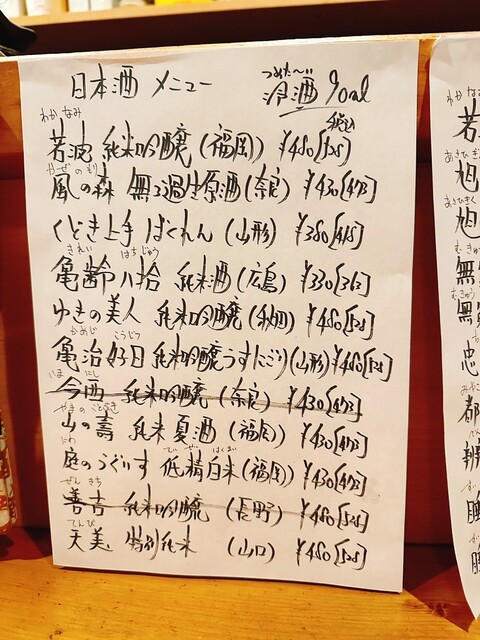 日本酒 メニュー
つめた〜い
冷酒 90ml
税込
わかなみ
若波 純米吟醸 (福岡) ¥480[528]
かぜのもり
風の森 無ろ過生原酒 (奈良) ¥430[473]
くどき上手 ばくれん (山形) ¥380[418]
きれい はちじゅう
亀齢 八拾 純米酒 (広島) ¥330[363]
ゆきの美人 純米吟醸 (秋田) ¥480[528]
かめじ こうじつ
亀治好日 純米吟醸うすにごり (山形) ¥480[528]
いまにし
今西 純米吟醸 (奈良) ¥430[473]
やまのことぶき
山の壽 純米 夏酒 (福岡) ¥430[473]
にわ ていせいはくまい
庭のうぐいす 低精白米 (福岡) ¥430[473]
ぜんきち
善吉 純米吟醸 (長野) ¥480[528]
てんび
天美 特別純米 (山口) ¥480[528]
わかな
若
あさひぎ
旭
あさひきく
旭
むきゅう
無
むきゅう
無
忠
都